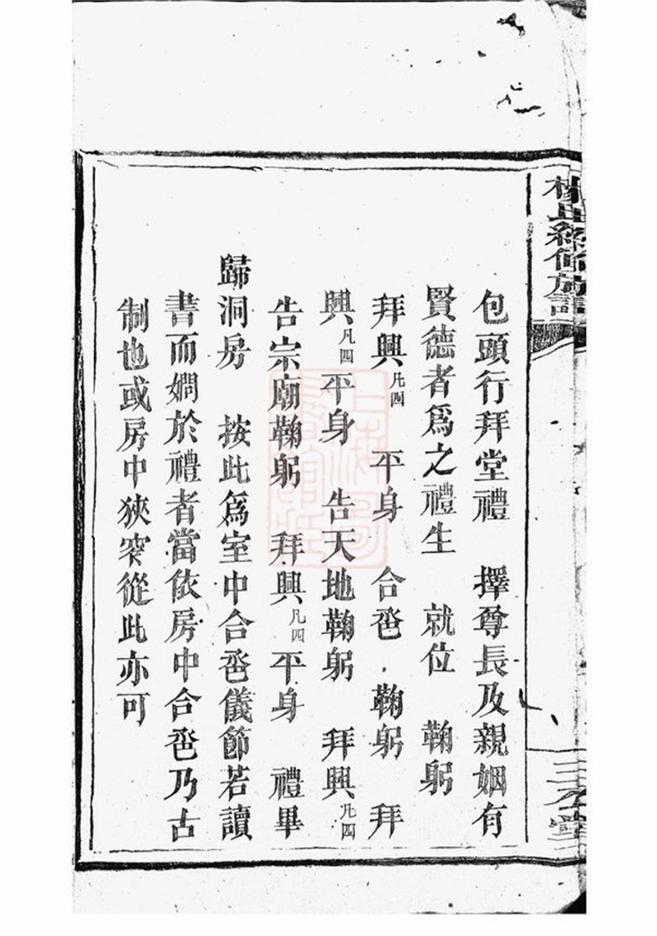 包頭行拜堂禮 擇尊長及親姻有
賢德者爲之禮生 就位 鞠躬
拜興凡四 平身 合卺 鞠躬 拜
興凡四 平身 告天地鞠躬 拜興凡四
告宗廟鞠躬 拜興凡四 平身 禮畢
歸洞房 按此爲室中合卺儀節若讀
書而嫺於禮者當依房中合卺乃古
制也或房中狹窄從此亦可